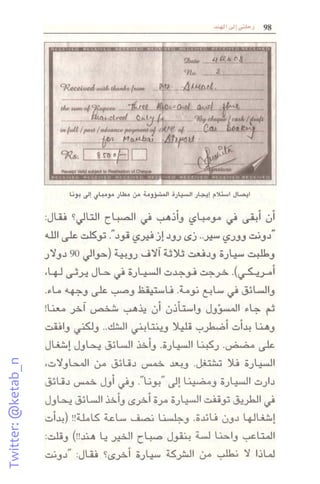 98 رحلتي إلى الهند
RECEIVED RECEIVED RECEIVED RECEIVED RECEIVED RECEIVED
Date
No. 2
Received with thanks from Mr Ahmad.
the sum of Rupees Three thousand and five
Hundred only By cheque / cash / draft
in full / part / advance payment of of Car booking
for Mumbai Airport
Rs.
Receipt Valid subject to Realisation of Cheque
ايصال استلام إيجار السيارة المشؤومة من مطار مومباي إلى بونا
أن أبقى في مومباي وأذهب في الصباح التالي؟ فقال:
"دونت ووري سير.. زي رود إز فيري قود". توكلت على الله
وطلبت سيارة ودفعت ثلاثة آلاف روبية (حوالي 90 دولار
أمريكي). خرجت فوجدت السيارة في حال يرثى لها،
والسائق في سابع نومة. فاستيقظ وصب على وجهه ماء.
ثم جاء المسؤول واستأذن أن يذهب شخص آخر معنا!
وهنا بدأت أضطرب قليلا وينتابني الشك.. ولكني وافقت
على مضض. ركبنا السيارة. وأخذ السائق يحاول إشغال
السيارة فلا تشتغل. وبعد خمس دقائق من المحاولات،
دارت السيارة ومضينا إلى "بونا". وفي أول خمس دقائق
في الطريق توقفت السيارة مرة أخرى وأخذ السائق يحاول
إشغالها دون فائدة. وجلسنا نصف ساعة كاملة!! (بدأت
المتاعب واحنا لسة بنقول صباح الخير يا هند!!) وقلت:
لماذا لا نطلب من الشركة سيارة أخرى؟ فقال: "دونت
Twitter: @ketab_n